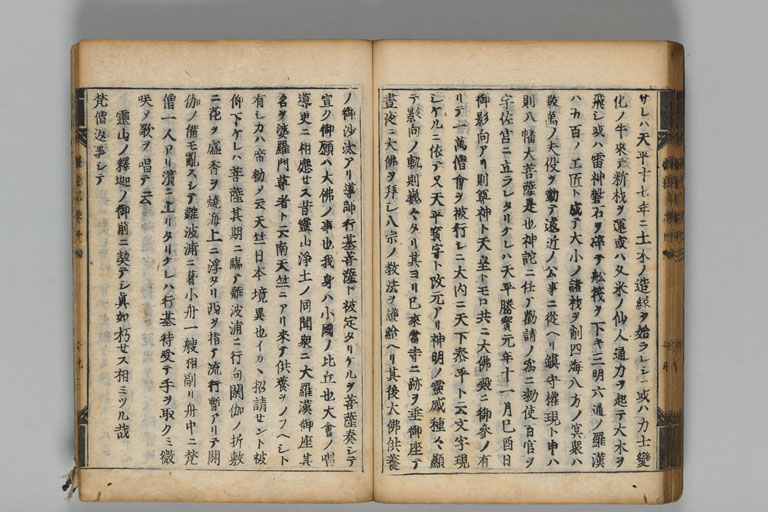 サレハ天平十七年ニ土木ノ造絞ヲ始ラレシニ或ハ力士變
化ノ牛來テ新材ヲ運或ハ久米ノ仙人通力ヲ起テ大木ヲ
飛シ或ハ雷神磐石ヲ碎テ舩筏ヲ下キ三明六通ノ羅漢
ハ五百ノ工匠ト成テ大小ノ諸材ヲ削四海八方ノ冥衆ハ
數萬ノ夫役ヲ勤テ遠近ノ公事ニ從ヘリ鎮守權現ト申ハ
則八幡大菩薩是也神託ニ任テ勸請ノ爲ニ勅使百官ヲ
宇佐宮ニ立ラレタリケレハ天平勝寳元年十一月己酉日
御影向アリ則軍神ト天皇トモロ共ニ大佛殿ニ御參ノ有
リテ一萬僧會ヲ被行レシニ大内ニ天下泰平ト云文字現
シケルニ依テ又天平寳字ト改元アリ神明ノ靈感種々顯
テ影向ノ軌則巍々タリ其ヨリ已來當寺ニ跡ヲ垂御座テ
晝夜ニ大佛ヲ拜シ八宗ノ教法ヲ護給ヘリ其後大佛供養
ノ御沙汰アリ導師行基菩薩ト被定タリケルヲ菩薩奏シテ
宣ク御願ハ大佛ノ事也我身ハ小國ノ比丘也大會ノ唱
導更ニ相應セス昔靈山淨土ノ同聞衆ニ大羅漢御座其
名ヲ婆羅門尊者ト云南天竺ニアリ來テ供養ヲノフヘシト
有シカハ帝勅ヲ云天竺日本境異也イカヽ招請セント被
仰下ケレハ菩薩其期ニ臨テ難波浦ニ行向閼伽ノ折敷
ニ花ヲ盛香ヲ燒海上ニ浮タリ西ヲ指テ流行暫アリテ閼
伽ノ備モ亂スシテ難波浦ニ著小舟一艘相副リ舟中ニ梵
僧一人アリ濱ニ上リタリケレハ行基待受テ手ヲ取クミ微
咲ヲ歌ヲ唱テ云
靈山ノ釋迦ノ御前ニ契テシ眞如朽セス相ミツル哉
梵僧返事シテ